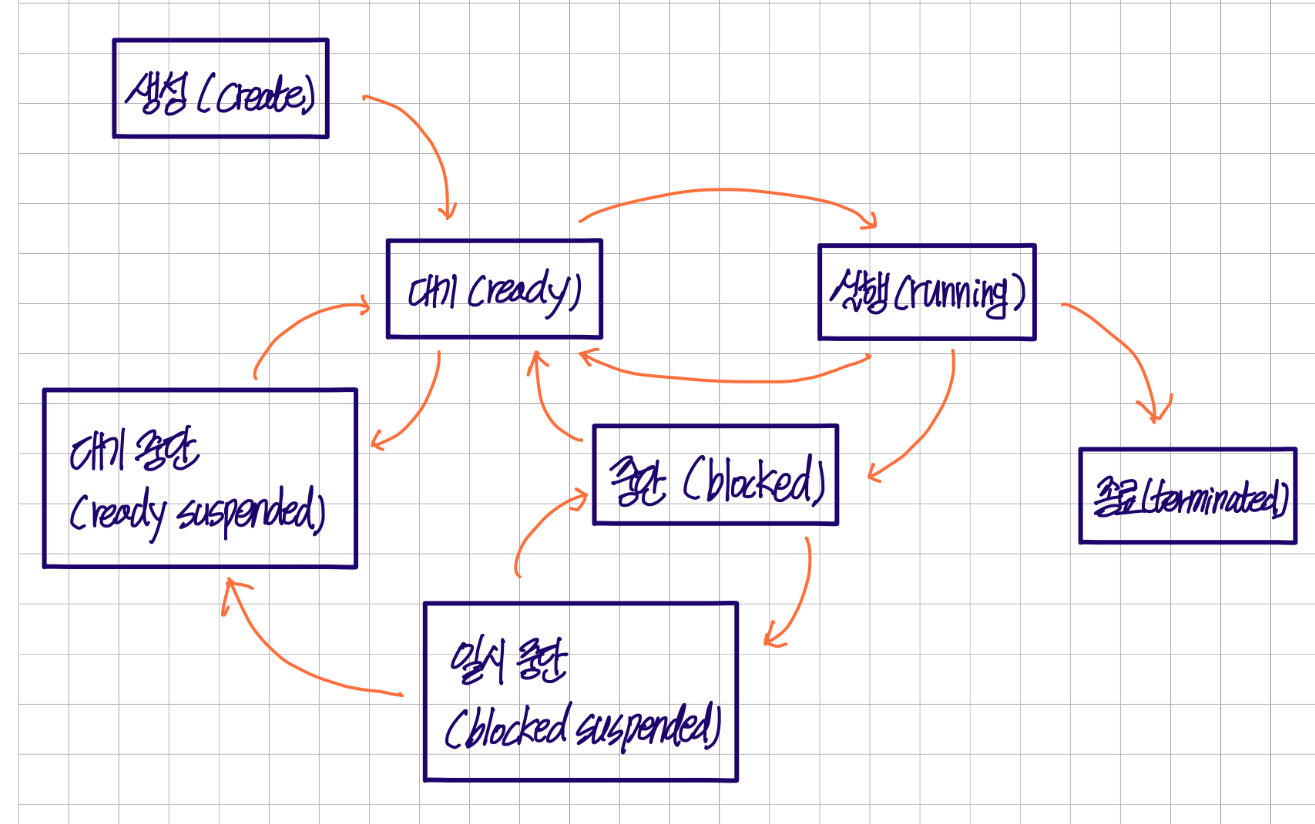 생성 (create)
대기 (ready)
실행 (running)
대기 중단
(ready suspended)
중단 (blocked)
종료 (terminated)
일시 중단
(blocked suspended)